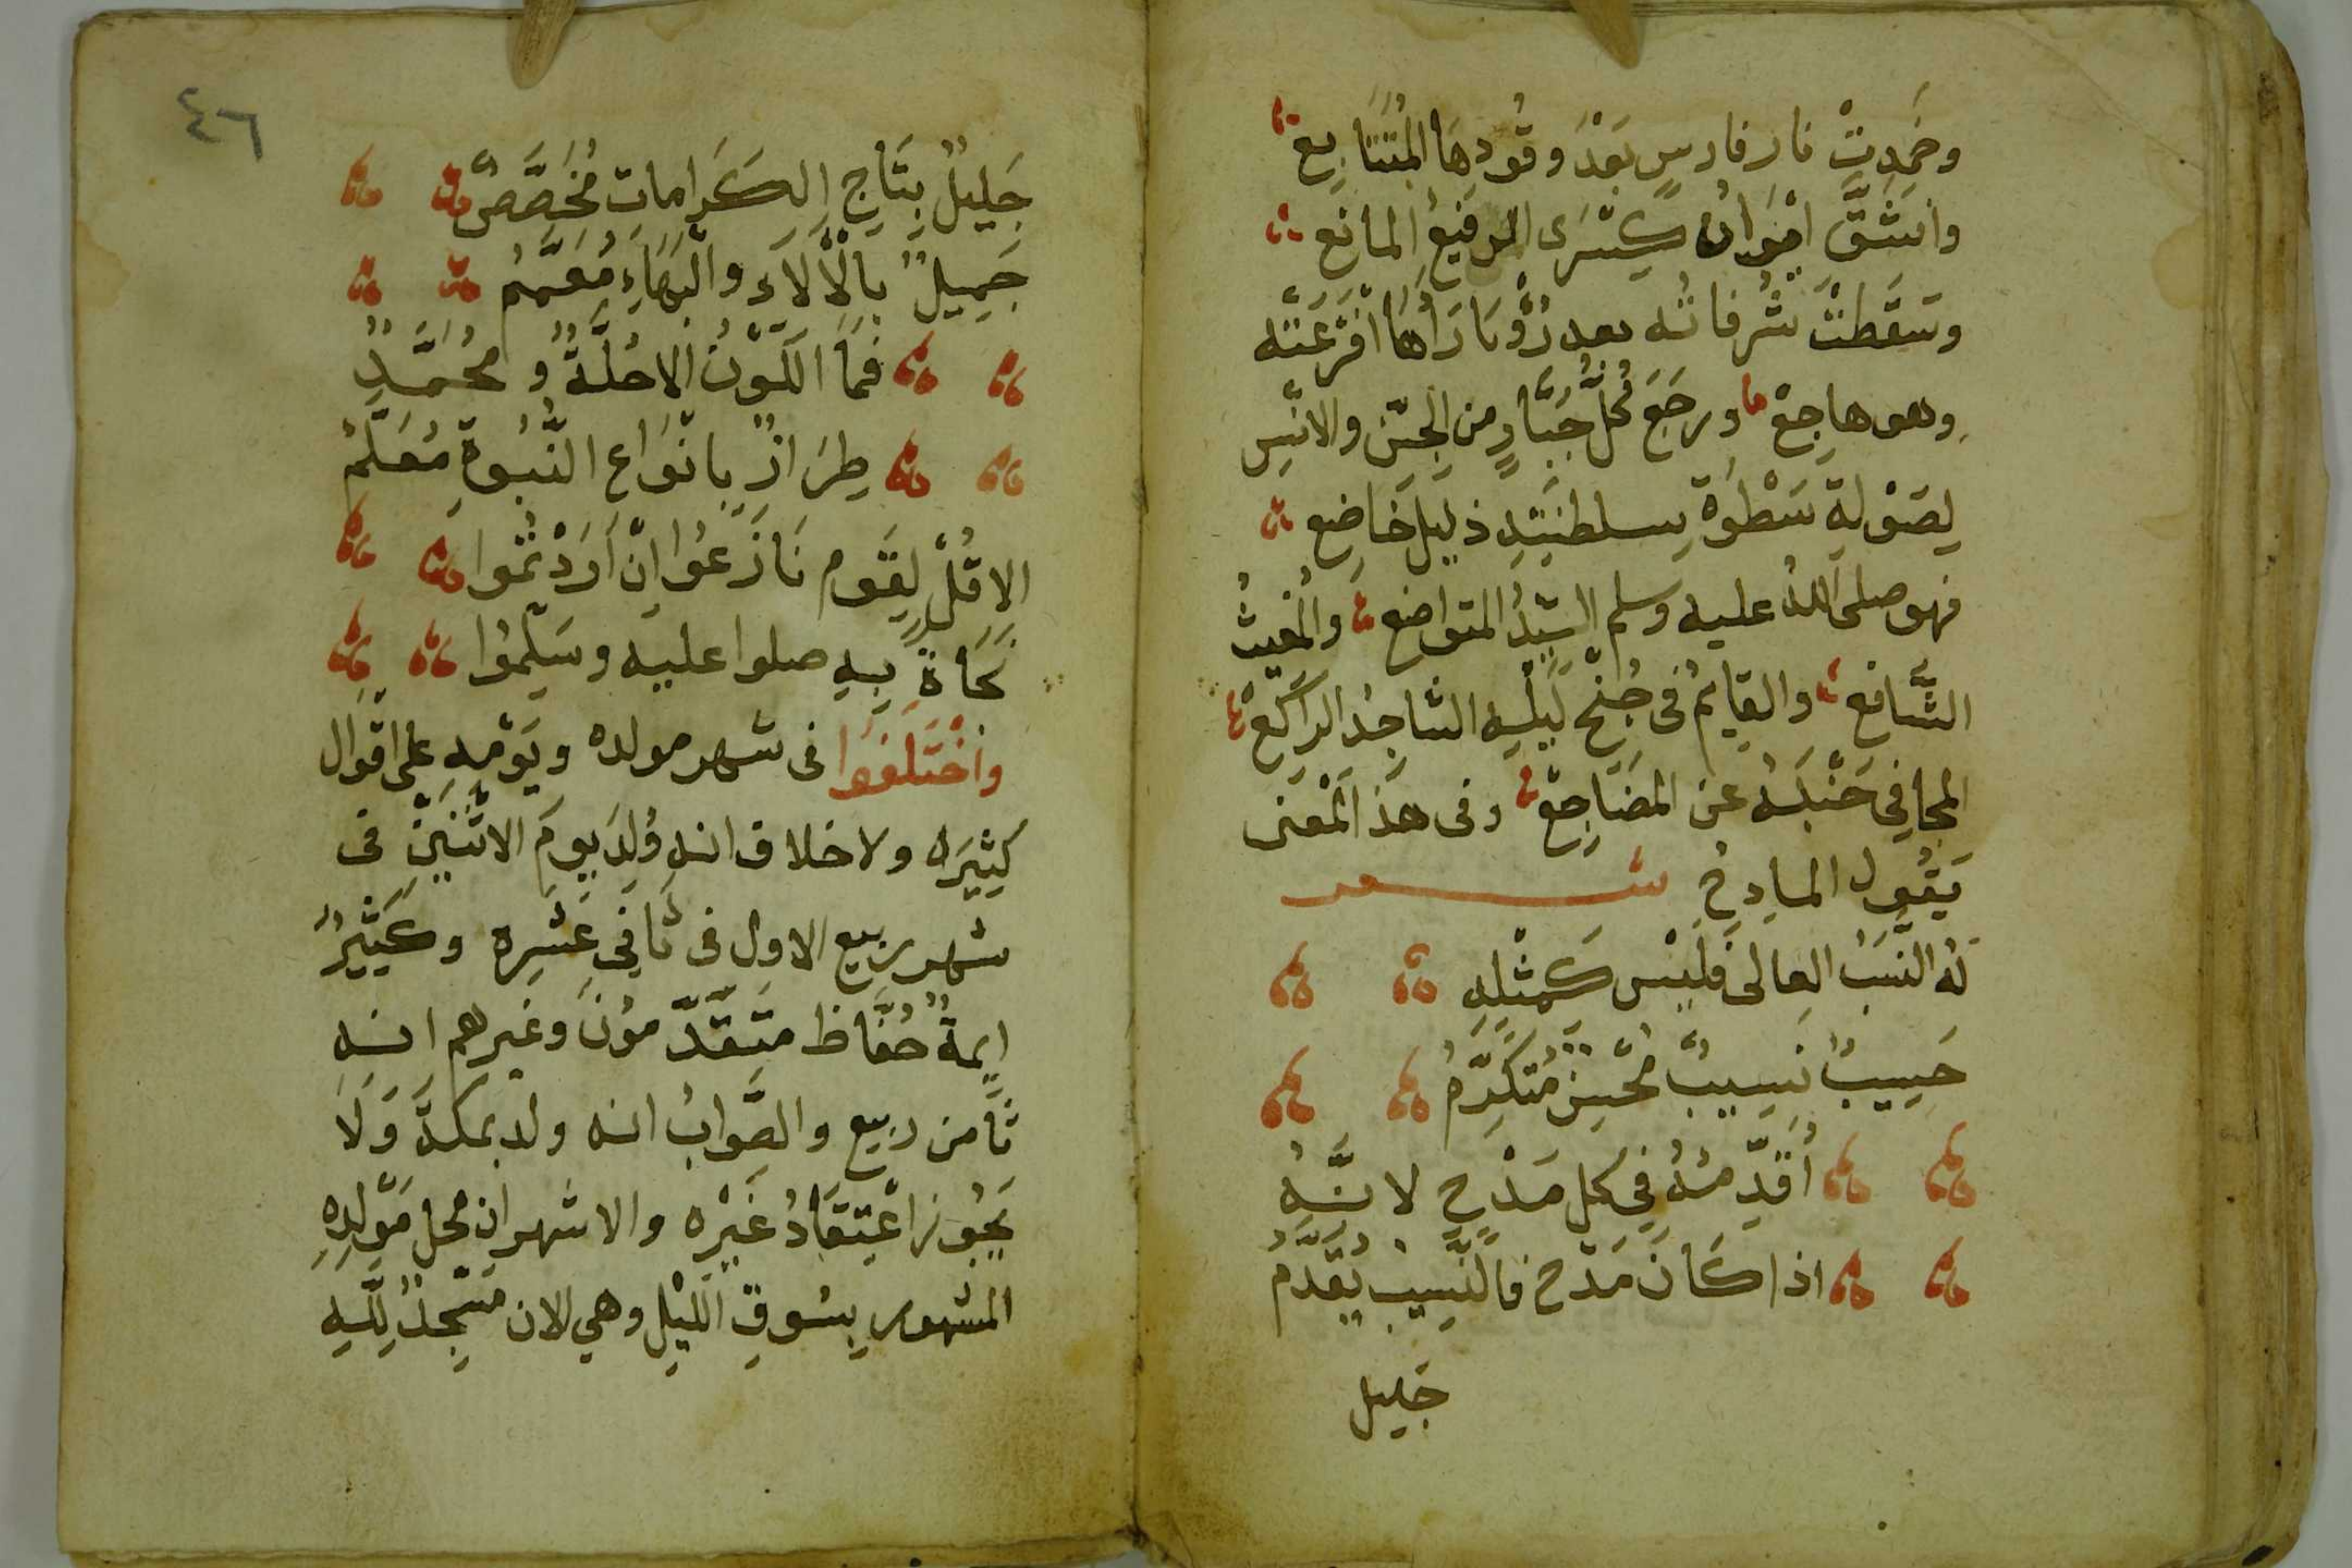 وخَمِدتْ نار فارسٍ بَعْدَ وقُودِهَا المُتَتَابِع
وانشَقَّ اِيْوَانُ كِسْرَى الرفيعُ المانع
وسَقَطتْ شُرفاتُه بعد رُؤْيَا رَاهَا اَفْزَعَتْه
وهو هاجِعْ ورجَعَ كُلُّ جَبَّارٍ من الجنِّ والانْسِ
لِصَوْلةِ سَطْوَةِ سلطنَتِهِ ذليل خَاضِع
فهو صلى اللهُ عليه وسلم السَّيِّدُ المتواضع والمُغيثُ
الشَّافع والقايمُ فى جُنْحِ لَيْلِهِ السَّاجِدُ الراكعْ
المجافِي جَنْبَهُ عن المضَاجِعْ وفى هذا المَعْنى
يَقُول المادِحُ شعر
لهُ النَّسَبُ العالى فلَيْسَ كَمِثْلِهِ
حَسِيبٌ نَسِيبٌ مُحْسِنٌ مُتَكَرِّمُ
أُقَدِّمُهُ فِي كل مَدْحٍ لانَّهُ
اذا كَانَ مَدْحٌ فالنَّسِيبُ يُقَدَّمُ
جليل
٤٦
جَلِيلٌ بِتَاجِ الكَرَامَاتِ مُخَصَّصٌ
جَمِيلٌ بالْأَلَاءِ والْبَهَاءِ مُعَمَّمُ
فمَا الكَوْنُ الا حُلَّةٌ و مُحُمَّدٍ
طِرَازٌ بانْوَاعِ النُّبُوةِ مُعَلَّمُ
الا قُلْ لِقَومٍ نَازَعُوا اِنْ اَرَدْتُموا
نَجَاةً بِهِ صلوا عليه وسَلِّمُوا
واخْتَلَفوا فى شهر مولده ويَوْمِهِ على اقْوَال
كثِيَره ولا خلاف انه وُلِدَ يومَ الاثْنَيْنِ فى
شهر ربيع الاول فى ثَانِي عَشَرِه وكَثِيرٌ
ايمةٌ حُفَّاظ متَقَدِّمونَ وغيرهم انه
ثَامن ربيع والصَّوابُ انه ولد بمكةَّ وَلَا
يَجُوز اعْتِقَادُ غَيْرِه والاشهر ان محل مَوْلِدِهِ
المشهور بِسُوقِ اللَيْلِ وهي الان مَسْجدٌ لِلَّهِ